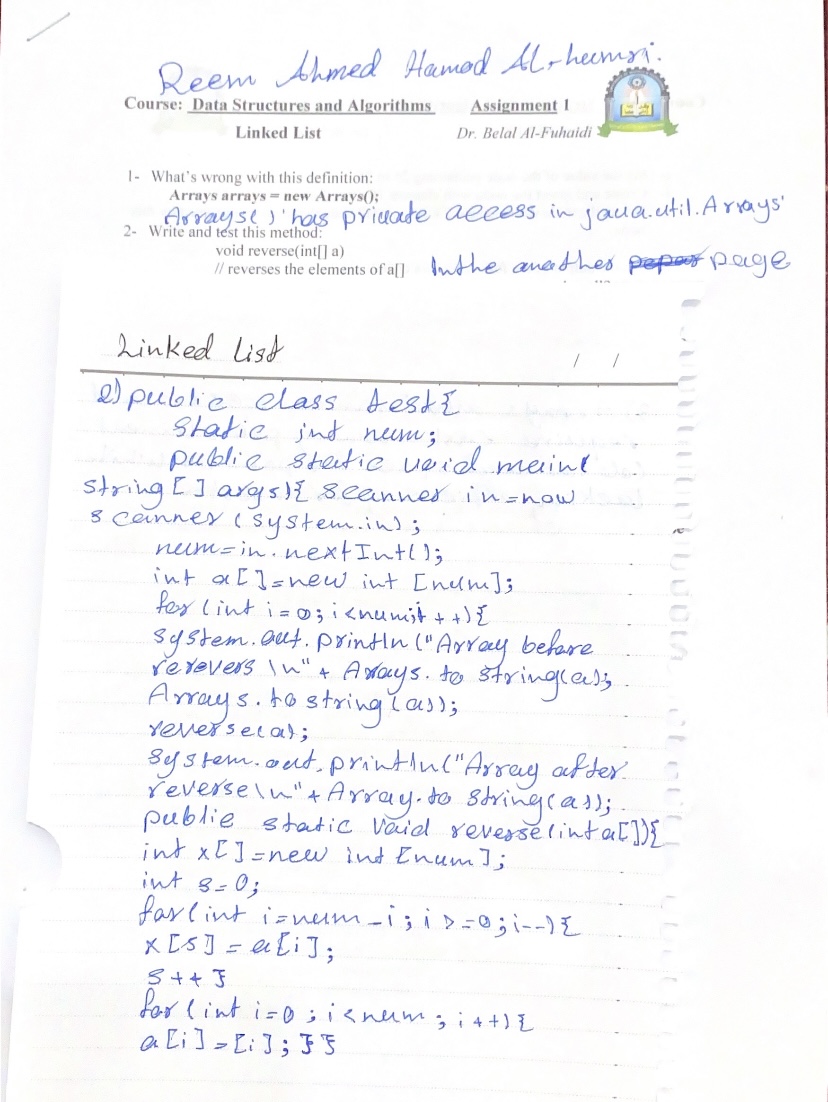 Reem Ahmed Hamod Al-heumsri.
Course: Data Structures and Algorithms Assignment 1
Linked List Dr. Belal Al-Fuhaidi
1- What's wrong with this definition:
Arrays arrays = new Arrays();
Arrays()'has private access in java.util.Arrays'
2- Write and test this method:
void reverse(int[] a)
// reverses the elements of a[] In the another page
Linked List / /
2) public class test{
static int num;
public static void main(
string [] args){ scanner in=now
scanner (system.in);
num=in.nextInt();
int a[]=new int [num];
for (int i=0; i<num;i++){
system.out.println ("Array before
rerevers \n"+ Arrays.to string(a);
Arrays.to string(a));
reverse(a);
system.out.println("Array after
reverse\n"+Array.to string(a));
public static void reverse(int a[]){
int x[]=new int [num];
int s=0;
for(int i=num-i; i>=0; i--){
x[s] = a[i];
s++}
for (int i=0; i<num; i++){
a[i]=[i]; }}